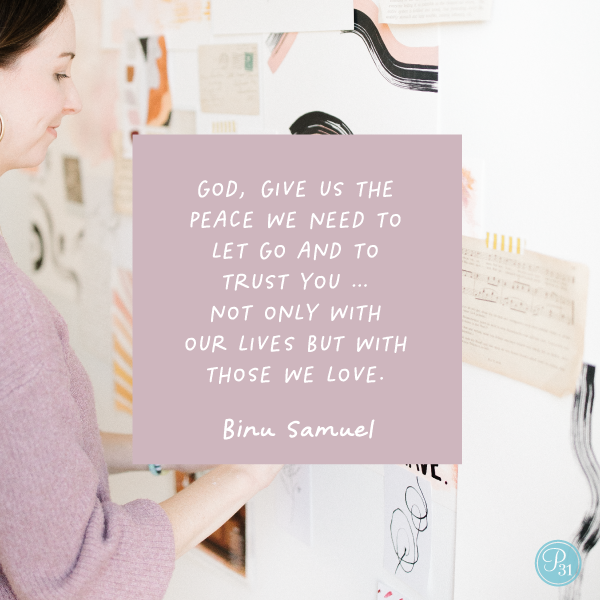 GOD, GIVE US THE
PEACE WE NEED TO
LET GO AND TO
TRUST YOU ...
NOT ONLY WITH
OUR LIVES BUT WITH
THOSE WE LOVE.
Binu Samuel
P31